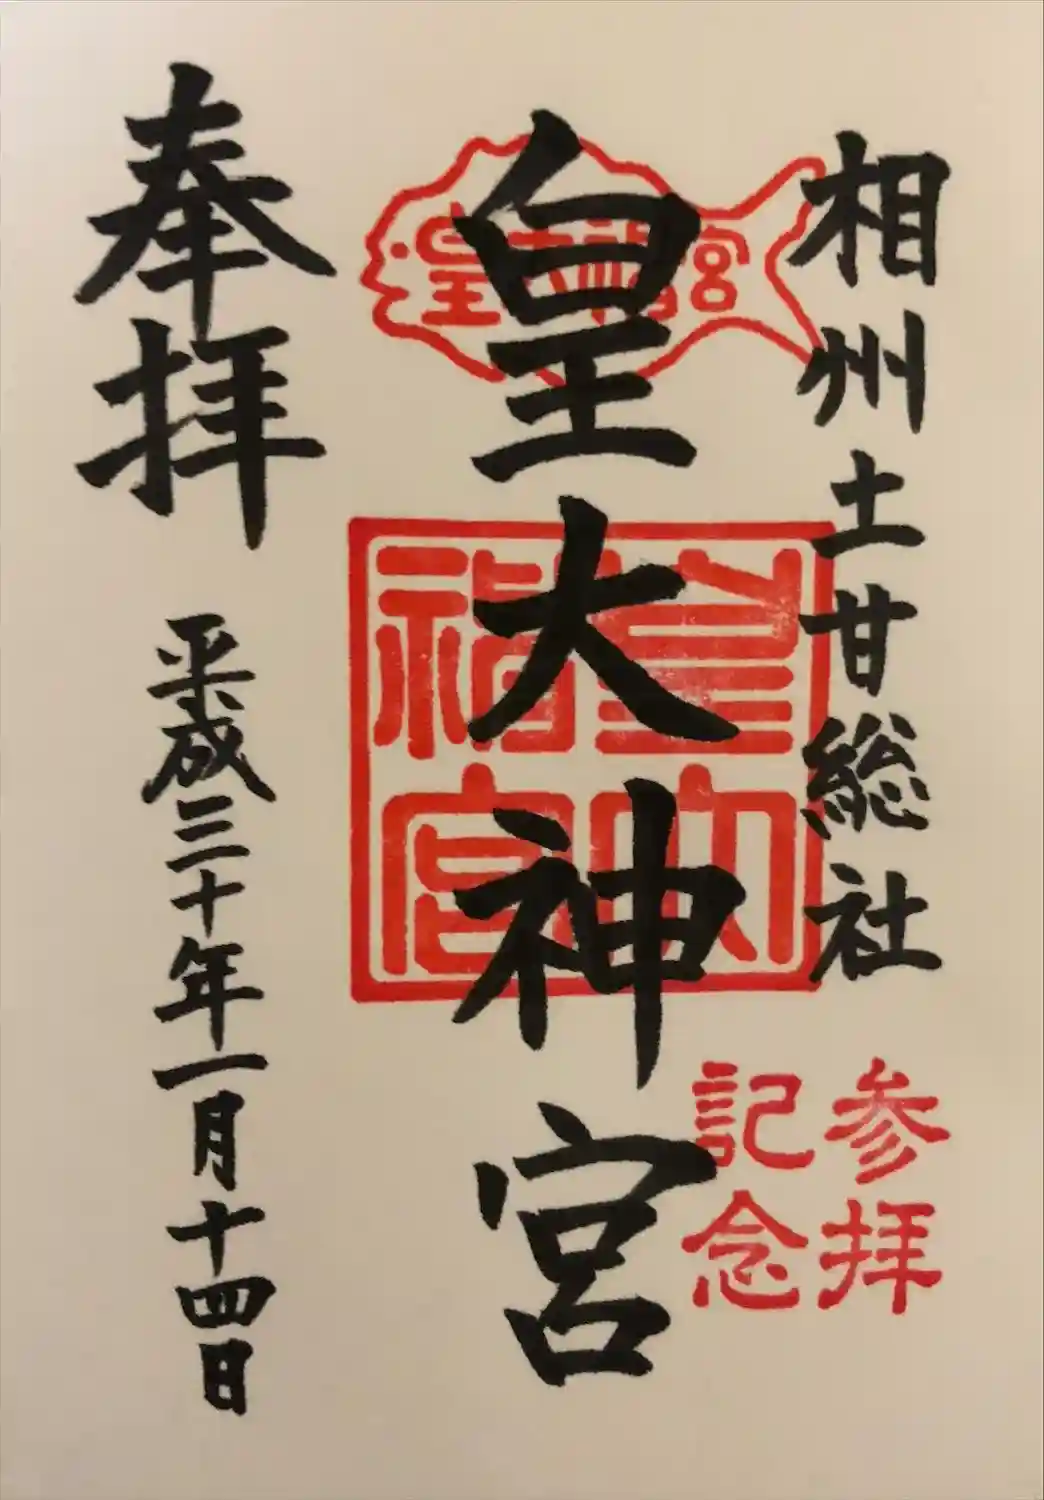 相州土甘総社
参拝
記念
皇大神宮
皇大神宮
皇大神宮
奉拝
平成三十年一月十四日